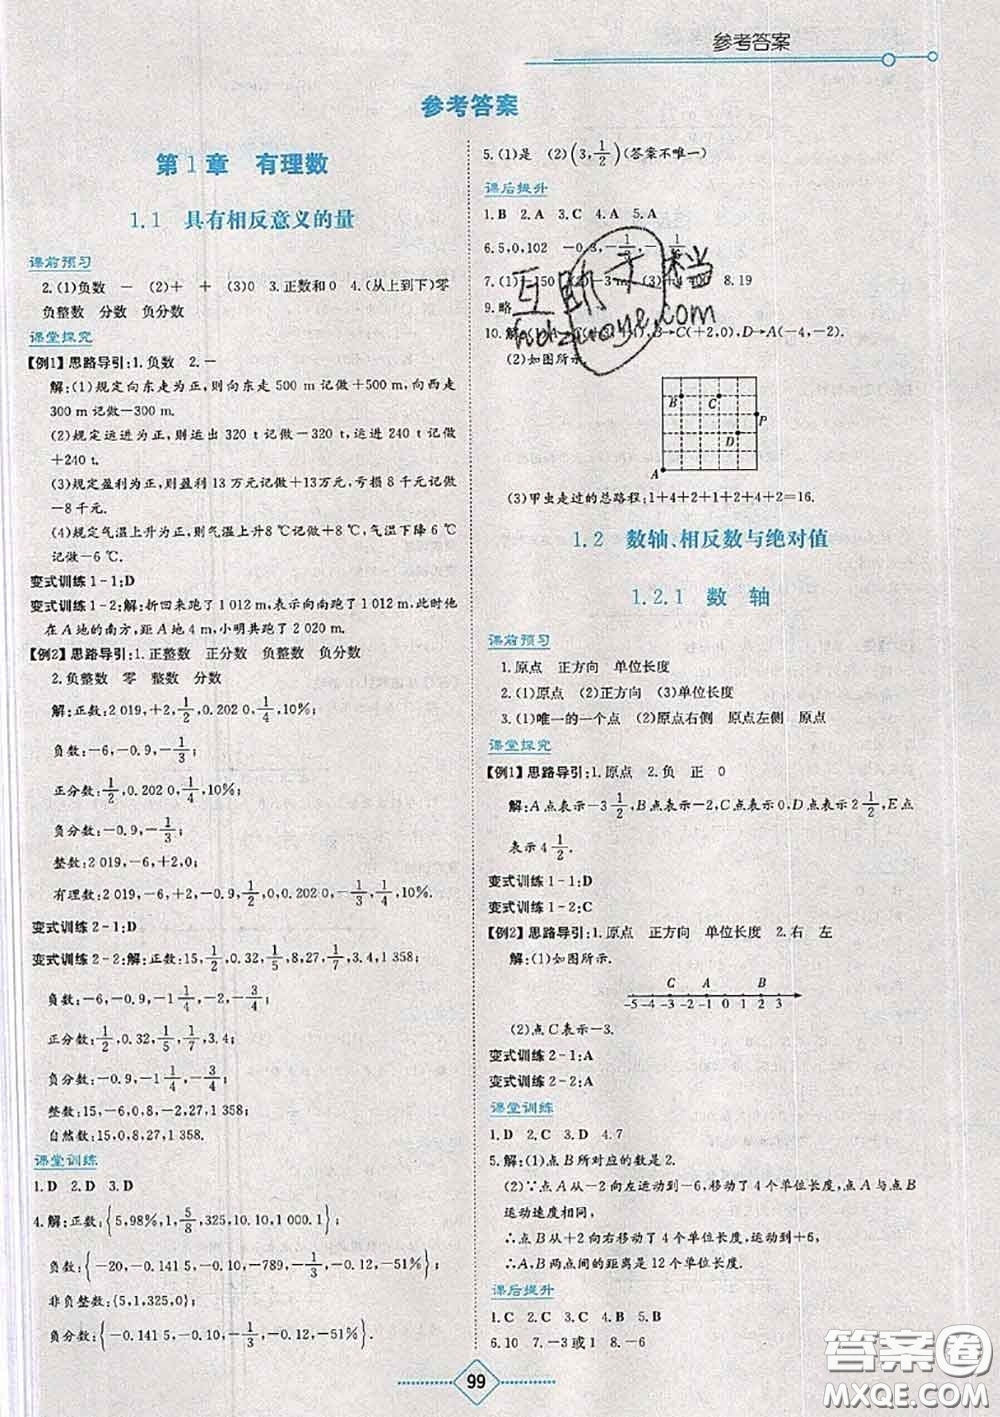 参考答案
参考答案
第1章　有理数
1.1　具有相反意义的量
课前预习
2.(1)负数　－　(2)＋　＋　(3)0　3.正数和0　4.(从上到下)零
负整数　分数　负分数
课堂探究
【例1】思路导引:1.负数　2.－
解:(1)规定向东走为正,则向东走 500 m 记做＋500 m,向西走
300 m 记做－300 m.
(2)规定运进为正,则运出 320 t 记做－320 t,运进 240 t 记做
＋240 t.
(3)规定盈利为正,则盈利 13 万元记做＋13万元,亏损 8 千元记做
－8 千元.
(4)规定气温上升为正,则气温上升8 ℃记做＋8 ℃,气温下降6 ℃
记做－6 ℃.
变式训练 1-1:D
变式训练 1-2:解:折回来跑了 1 012 m,表示向南跑了 1 012 m,此时他
在 A 地的南方,距 A 地 4 m,小明共跑了 2 020 m.
【例2】思路导引:1.正整数　正分数　负整数　负分数
2.负整数　零　整数　分数
解:正数:2 019,＋2,1/2,0.202 0,1/4,10%;
负数:－6,－0.9,－1/3;
正分数:1/2,0.202 0,1/4,10%;
负分数:－0.9,－1/3;
整数:2 019,－6,＋2,0;
有理数:2 019,－6,＋2,－0.9,1/2,0,0.202 0,－1/3,1/4,10%.
变式训练 2-1:D
变式训练 2-2:解:正数:15,1/2,0.32,1/5,8,27,1/7,3.4,1 358;
负数:－6,－0.9,－1 1/4,－2,－3/4;
正分数:1/2,0.32,1/5,1/7,3.4;
负分数:－0.9,－1 1/4,－3/4;
整数:15,－6,0,8,－2,27,1 358;
自然数:15,0,8,27,1 358.
课堂训练
1.D　2.D　3.D
4.解:正数:{5,98%,1,5/8,325,10.10,1 000.1};
负数:{－20,－0.141 5,－0.10,－789,－1/3,－0.12,－51%};
非负整数:{5,1,325,0};
负分数:{－0.141 5,－0.10,－1/3,－0.12,－51%}.
5.(1)是　(2)(3,1/2)(答案不唯一)
课后提升
1.B　2.A　3.C　4.A　5.A
6.5,0,102
8.19
9.略
B→C(＋2,0),D→A(－4,－2).
(2)如图所示.
B
C
P
D
A
(3)甲虫走过的总路程:1＋4＋2＋1＋2＋4＋2＝16.
1.2　数轴、相反数与绝对值
1.2.1　数　轴
课前预习
1.原点　正方向　单位长度
2.(1)原点　(2)正方向　(3)单位长度
3.(1)唯一的一个点　(2)原点右侧　原点左侧　原点
课堂探究
【例1】思路导引:1.原点　2.负　正　0
解:A点表示－3 1/2,B点表示－2,C点表示0,D点表示2 1/2,E点
表示 4 1/2.
变式训练 1-1:D
变式训练 1-2:C
【例2】思路导引:1.原点　正方向　单位长度　2.右　左
解:(1)如图所示.
C A B
-5 -4 -3 -2 -1 0 1 2 3
(2)点 C 表示－3.
变式训练 2-1:A
变式训练 2-2:A
课堂训练
1.D　2.C　3.D　4.7
5.解:(1)点 B 所对应的数是 2.
(2)∵点 A 从－2 向左运动到－6,移动了 4 个单位长度,点 A 与点 B
运动速度相同,
∴点 B 从＋2 向右移动了 4 个单位长度,运动到＋6,
∴A,B 两点间的距离是 12 个单位长度.
课后提升
1.C　2.C　3.C　4.B　5.B
6.10　7.－3 或 1　8.－6
99
互助文档
hdzuoye.com
答案圈
MXQE.COM